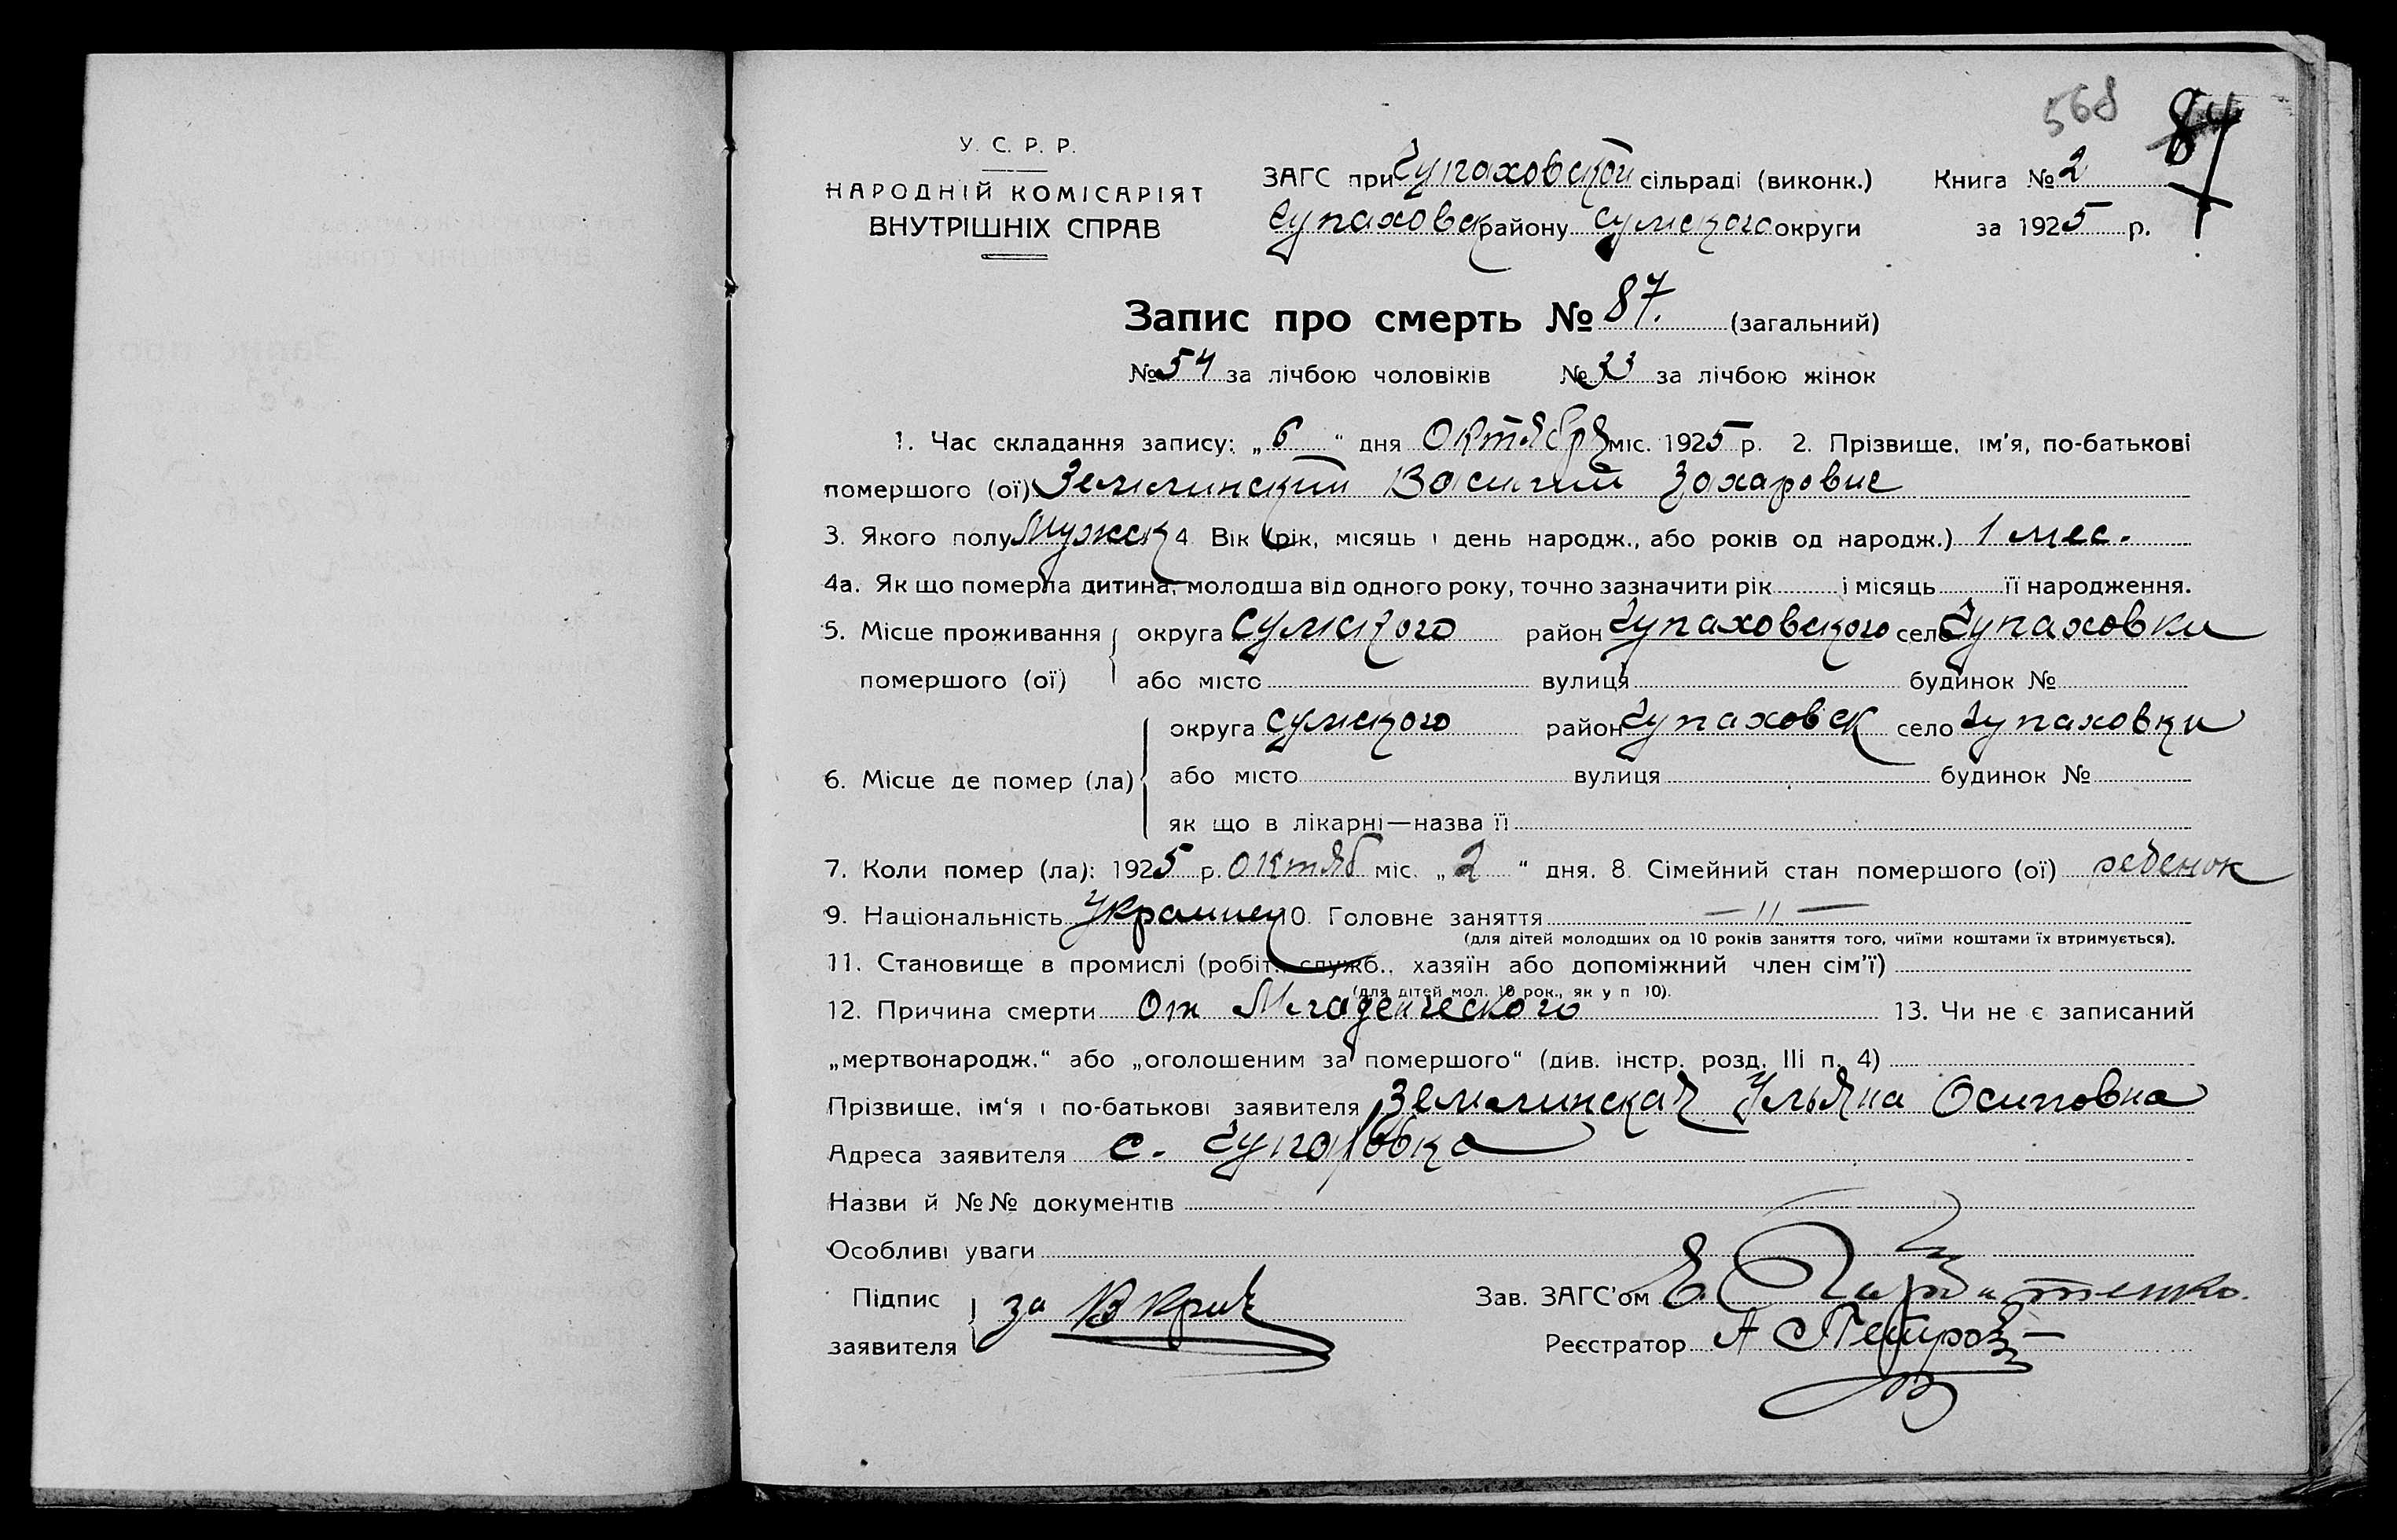 568 87
У. С. Р. Р.
НАРОДНІЙ КОМІСАРІЯТ
ВНУТРІШНІХ СПРАВ
ЗАГС при Чупаховской сільраді (виконк.) Книга № 2
Чупаховск району Сумского округи за 1925 р.
Запис про смерть № 87. (загальний)
№ 54 за лічбою чоловіків № 33 за лічбою жінок
1. Час складання запису: „6“ дня Октября міс. 1925 р. 2. Прізвище, ім'я, по-батькові
помершого (ої) Землинский Василий Захарович
3. Якого полу Мужск 4 Вік (рік, місяць і день народж., або років од народж.) 1 мес.
4а. Як що померла дитина, молодша від одного року, точно зазначити рік і місяць її народження.
5. Місце проживання округа Сумского район Чупаховского село Чупаховки
помершого (ої) або місто вулиця будинок №
округа Сумского район Чупаховск село Чупаховки
6. Місце де помер (ла) або місто вулиця будинок №
як що в лікарні—назва її
7. Коли помер (ла): 1925 р. Октяб міс. „2“ дня. 8. Сімейний стан помершого (ої) ребенок
9. Національність Украинец 10. Головне заняття — 11 —
(для дітей молодших од 10 років заняття того, чиїми коштами їх втримується).
11. Становище в промислі (робіт., служб., хазяїн або допоміжний член сім'ї)
(для дітей мол. 10 рок., як у п 10).
12. Причина смерти От Младенческого 13. Чи не є записаний
„мертвонародж.“ або „оголошеним за помершого“ (див. інстр. розд. III п. 4)
Прізвище, ім'я і по-батькові заявителя Землинская Ульяна Осиповна
Адреса заявителя с. Чупаховка
Назви й №№ документів
Особливі уваги
Підпис за Зав. ЗАГС'ом Е.
заявителя Реєстратор А Петров